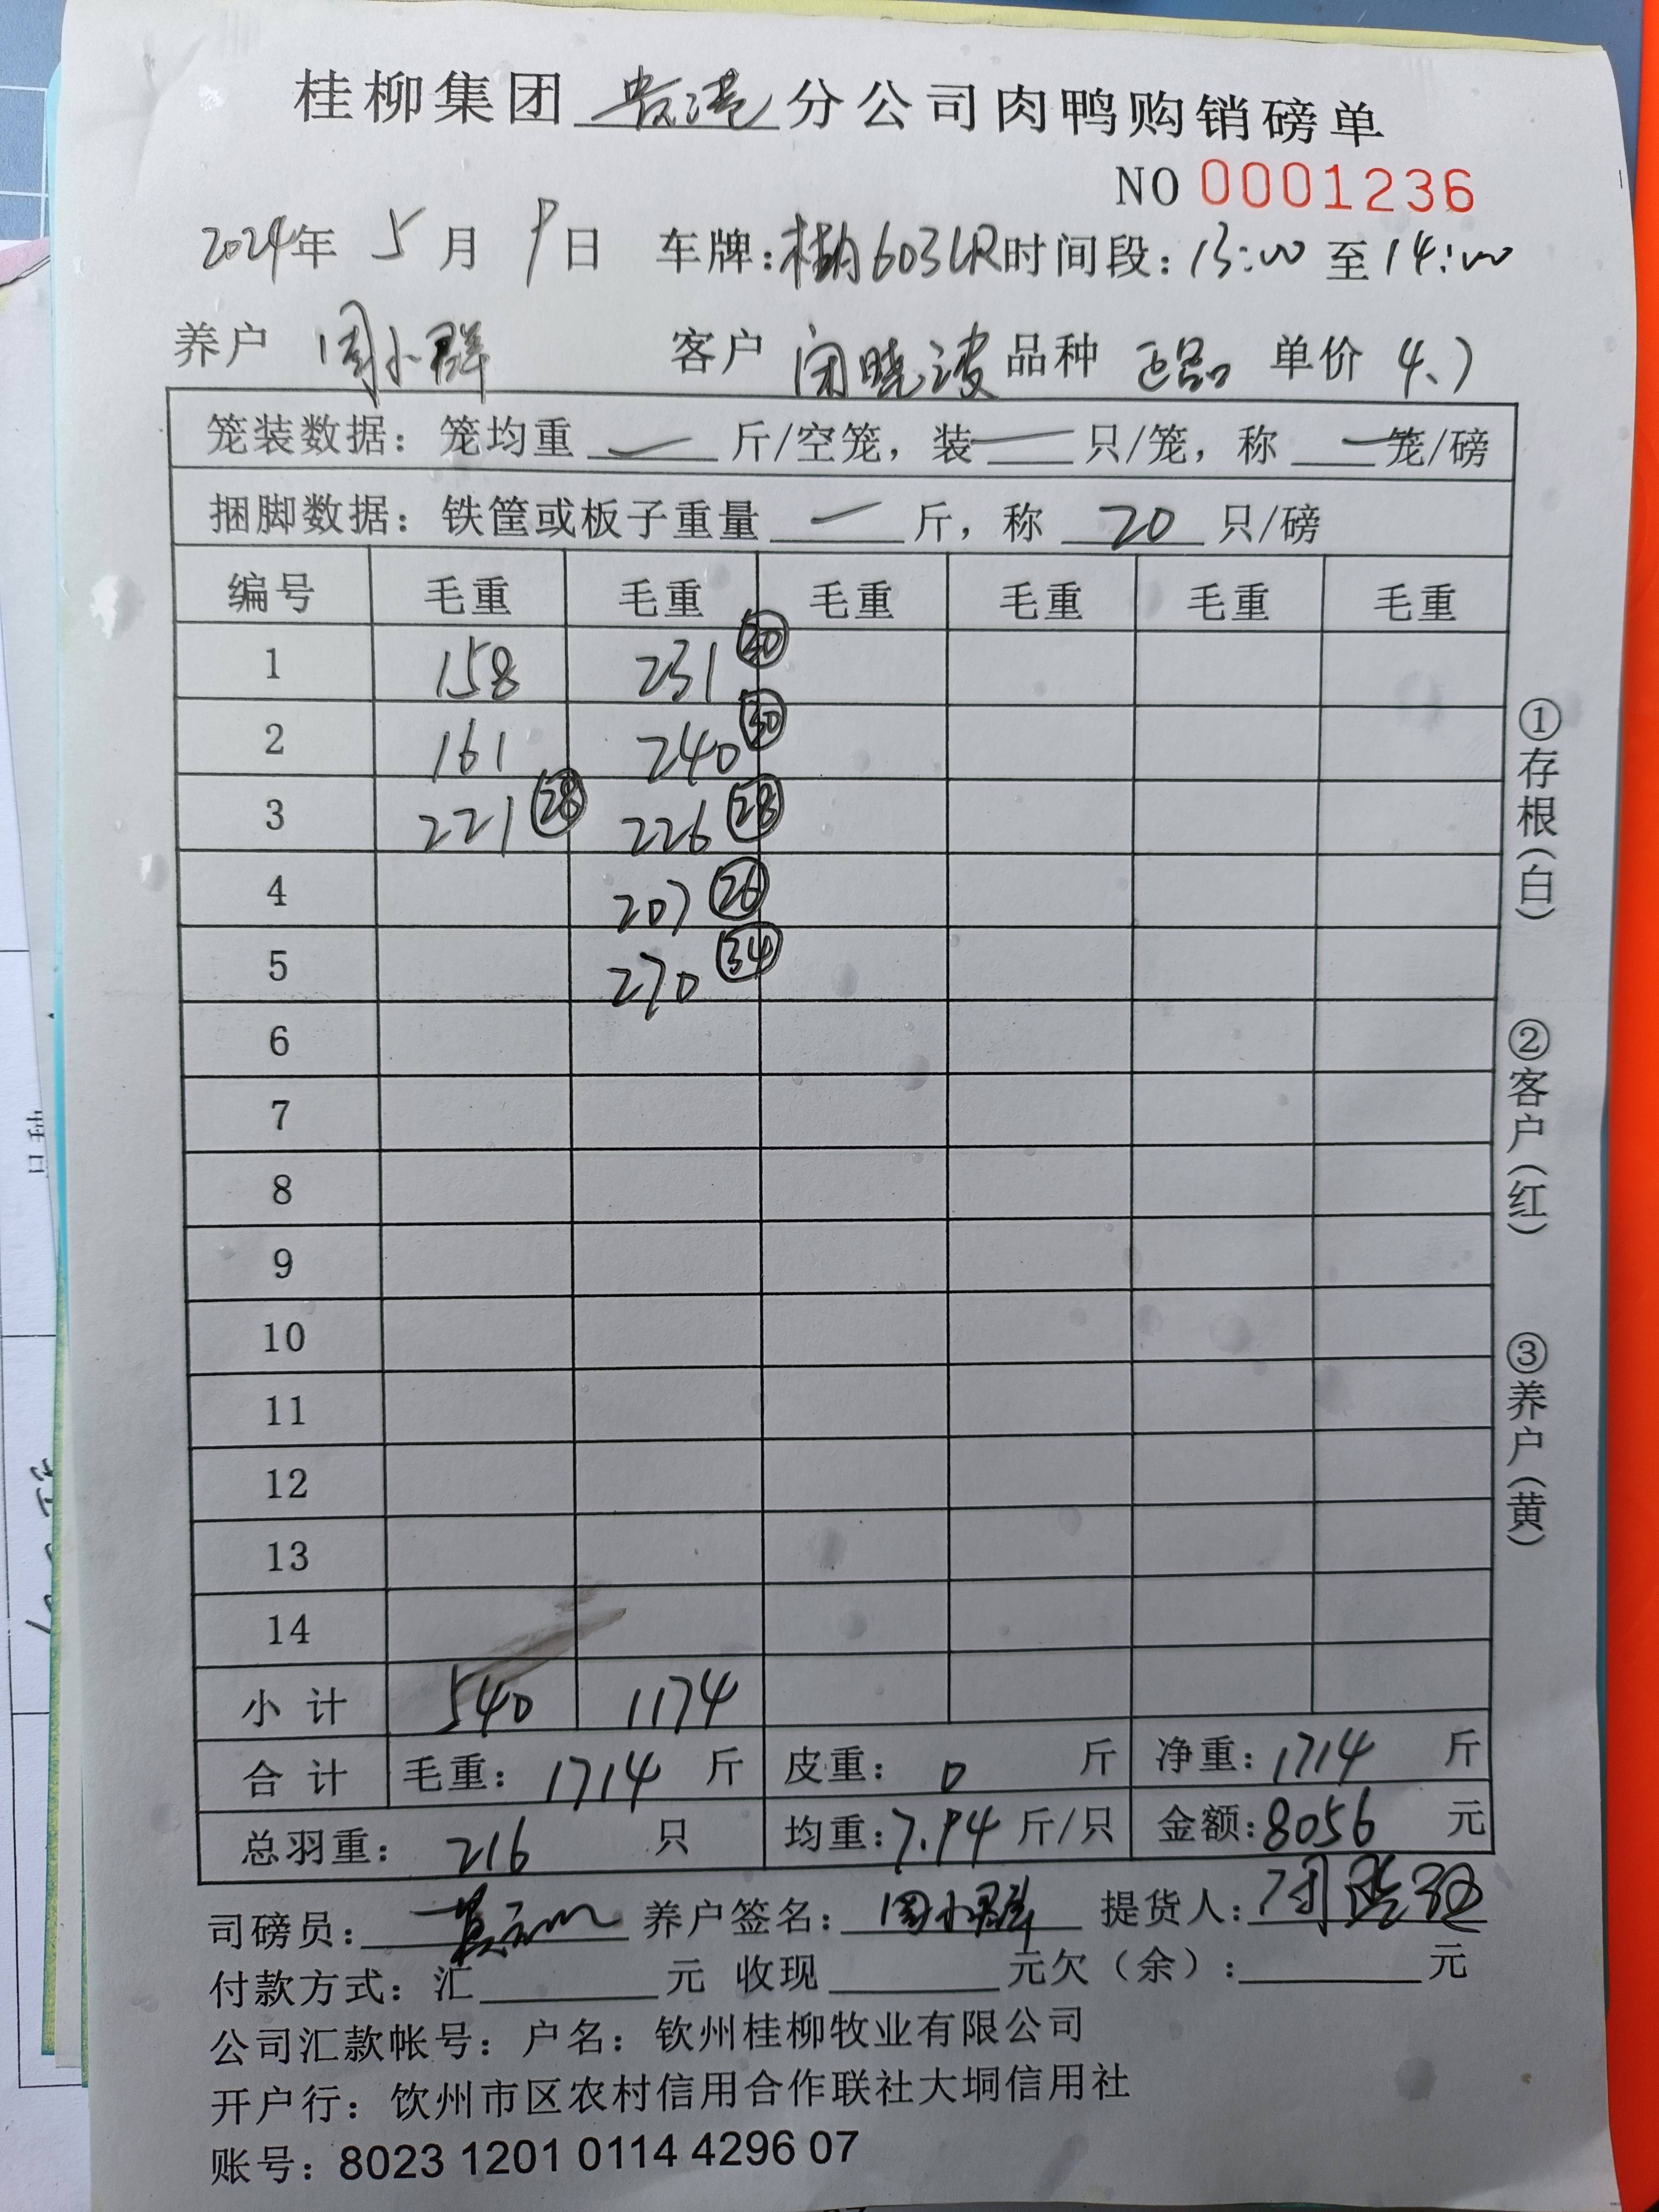 桂柳集团 贵港 分公司肉鸭购销磅单
NO 0001236
2024年 5 月 9 日 车牌: 603LR 时间段: 13:00 至 14:00
养户 周小群 客户 闭晓波 品种 正品 单价 4.7
笼装数据: 笼均重 — 斤/空笼, 装 — 只/笼, 称 — 笼/磅
捆脚数据: 铁筐或板子重量 — 斤, 称 20 只/磅
编号 毛重 毛重 毛重 毛重 毛重 毛重
1 158 231 ㉚
2 161 240 ㉚
3 221 ㉘ 226 ㉘
4 207 ㉖
5 270 ㉞
6
7
8
9
10
11
12
13
14
小计 540 1174
合计 毛重: 1714 斤 皮重: 0 斤 净重: 1714 斤
总羽重: 216 只 均重: 7.94 斤/只 金额: 8056 元
司磅员: 养户签名: 周小群 提货人:
付款方式: 汇______元 收现______元欠(余):______元
公司汇款帐号: 户名: 钦州桂柳牧业有限公司
开户行: 钦州市区农村信用合作联社大垌信用社
账号: 8023 1201 0114 4296 07
①存根(白)
②客户(红)
③养户(黄)